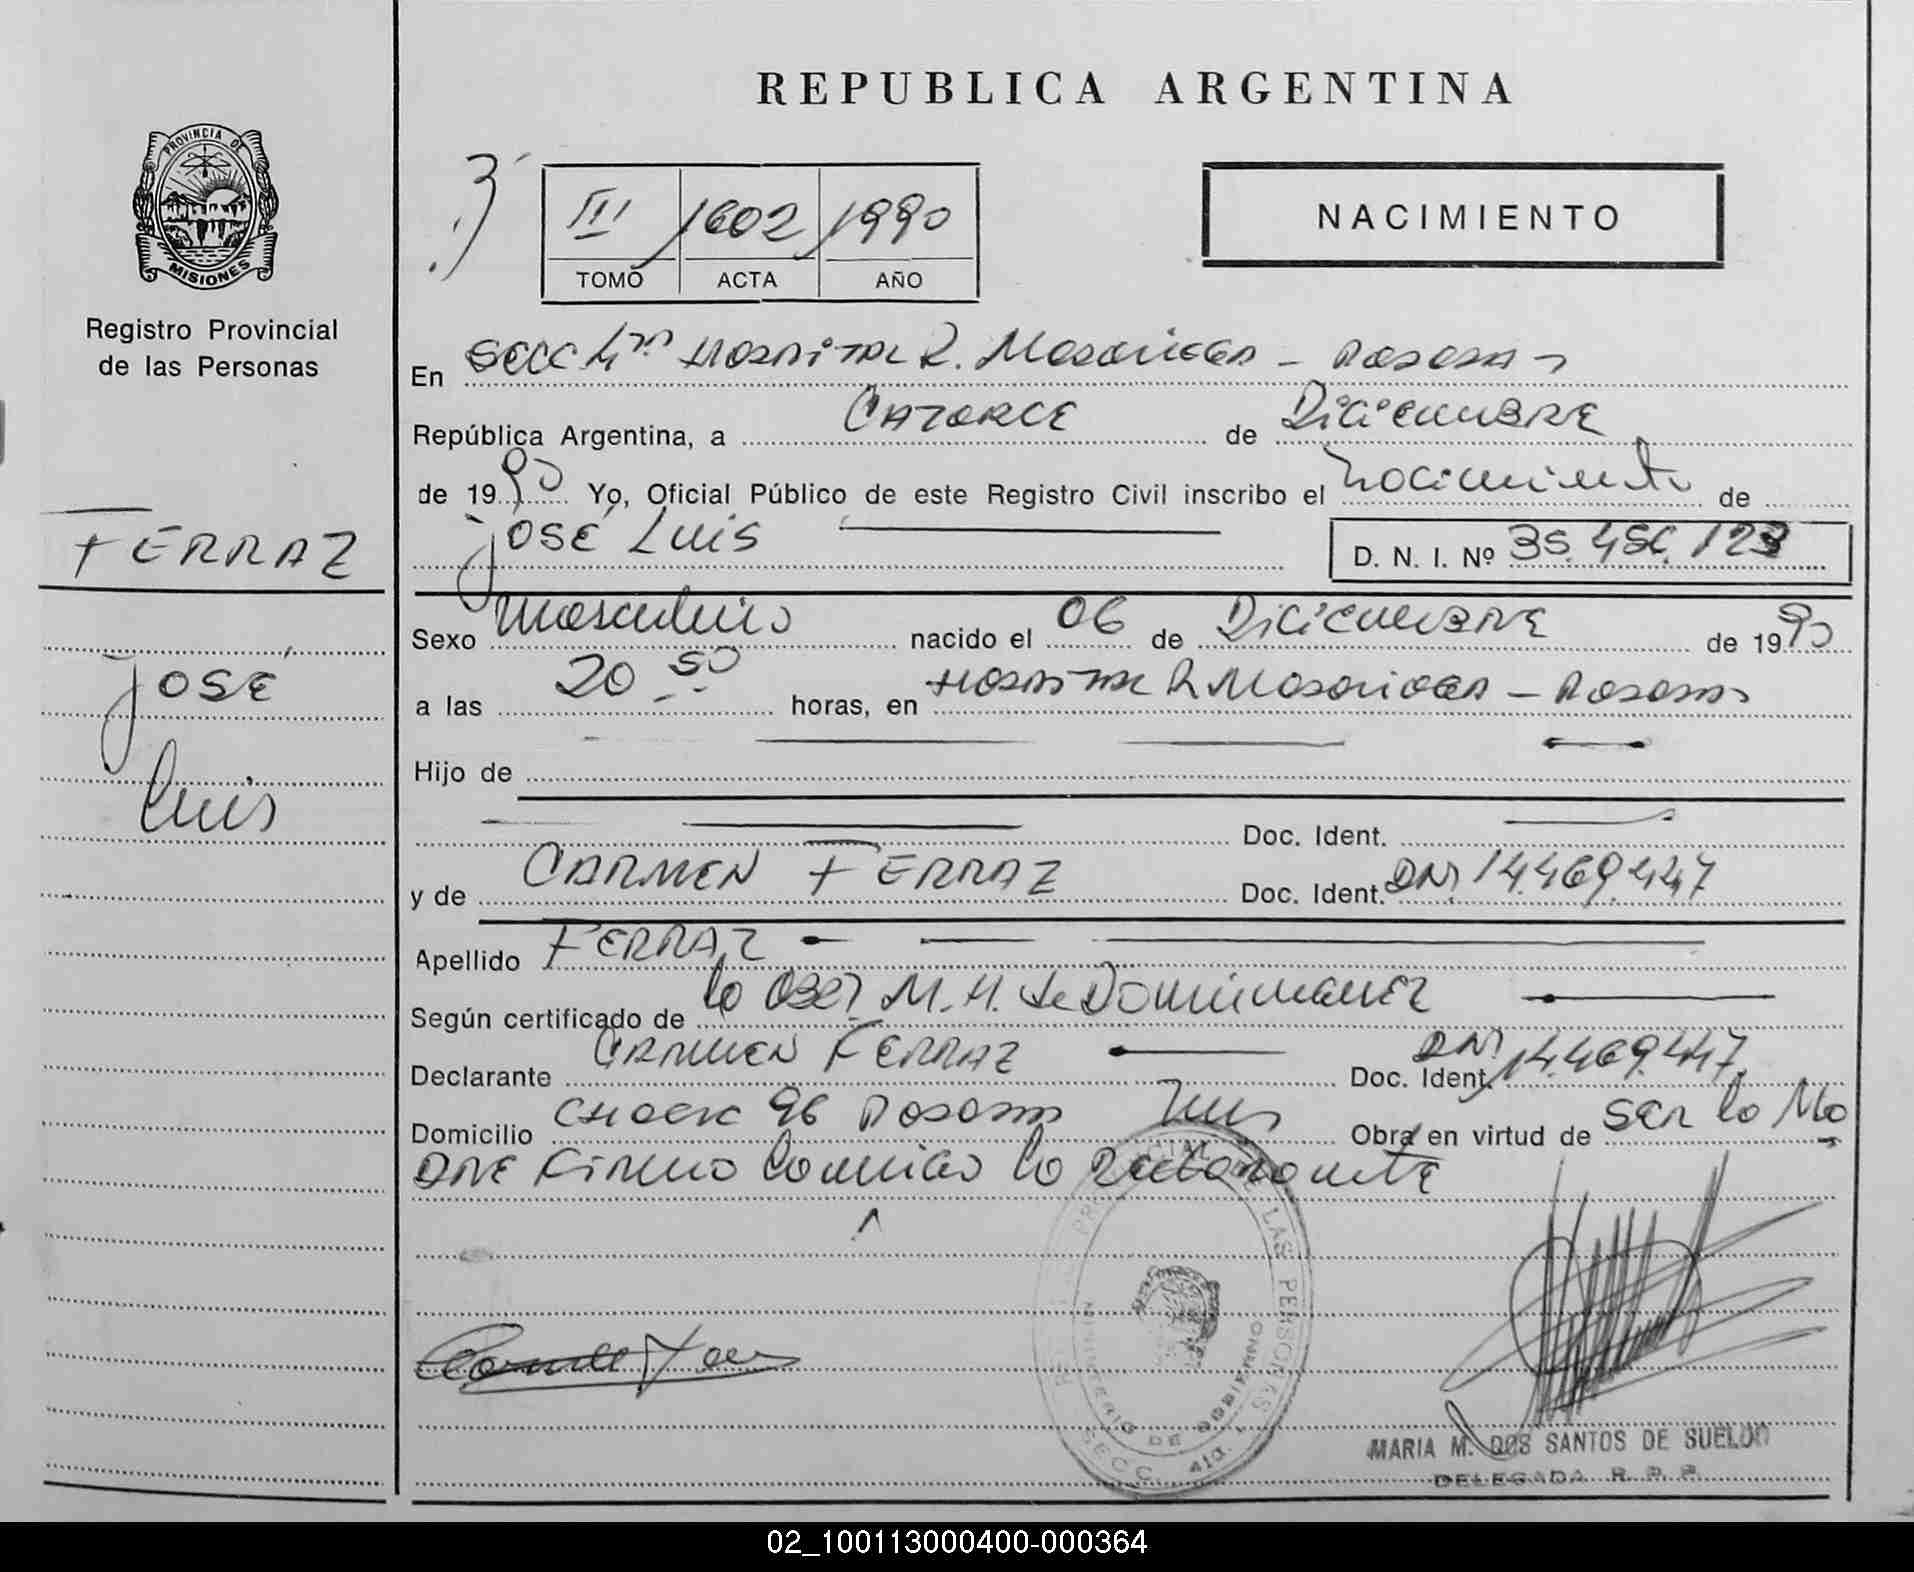 REPUBLICA ARGENTINA
PROVINCIA DE
MISIONES
Registro Provincial
de las Personas
FERRAZ
JOSÉ
Luis
III 1602 1990
TOMO ACTA AÑO
NACIMIENTO
En SECC 4ta HOSPITAL R. Madariaga - POSADAS
República Argentina, a CATORCE de DICIEMBRE
de 1990 Yo, Oficial Público de este Registro Civil inscribo el nacimiento de
JOSÉ LUIS D. N. I. Nº 35.456.123
Sexo masculino nacido el 06 de DICIEMBRE de 1990
a las 20.50 horas, en HOSPITAL R Madariaga - POSADAS
Hijo de
Doc. Ident.
y de CARMEN FERRAZ Doc. Ident. DNI 14.469.447
Apellido FERRAZ
Según certificado de la OBST. M. H. de
Declarante CARMEN FERRAZ Doc. Ident. DNI 14.469.447
Domicilio 96 POSADAS Mns Obra en virtud de SER la MA
DRE FIRMA conmigo la
MINISTERIO DE GOBIERNO
SECC. 4ta.
MARIA M. DOS SANTOS DE SUELDO
DELEGADA R. P. P.
02_100113000400-000364